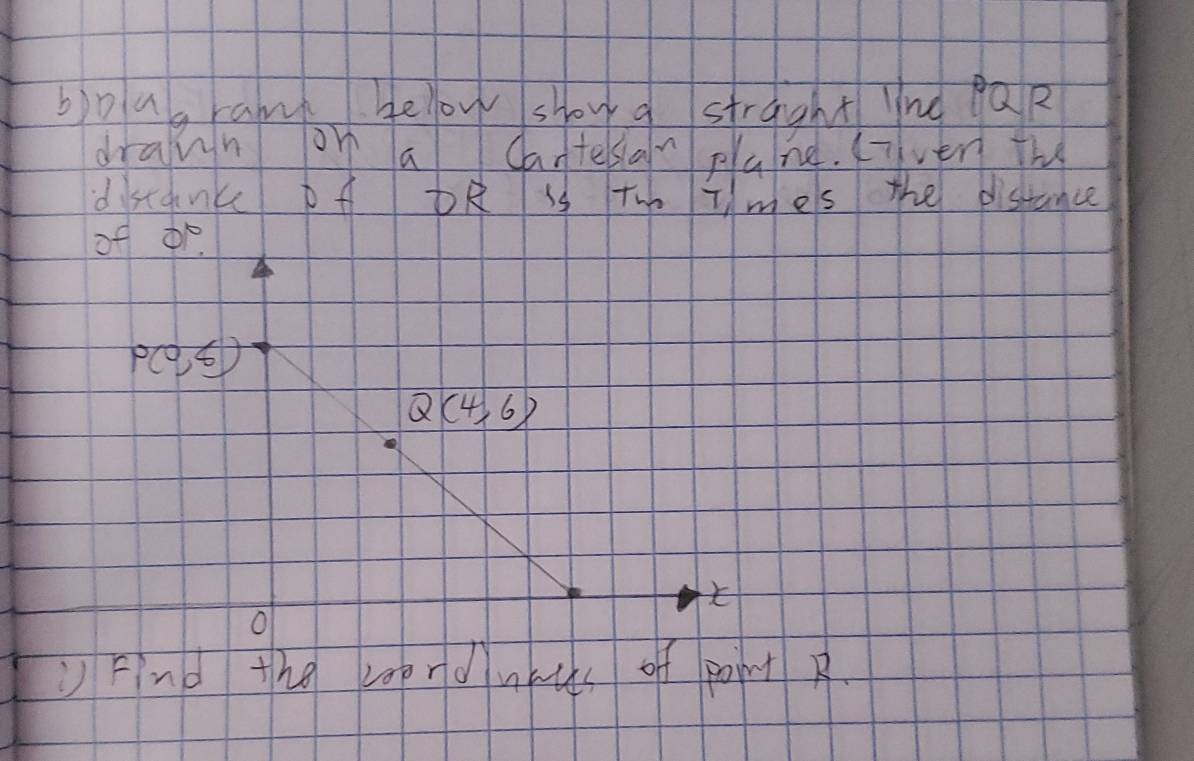 b) Diagram below show a straight line PQR
drawn on a Cartesian plane. Given the
distance of OR is two Times the distance
of OP.
Q(4,6)
x
0
i) Find the coordinates of point R.